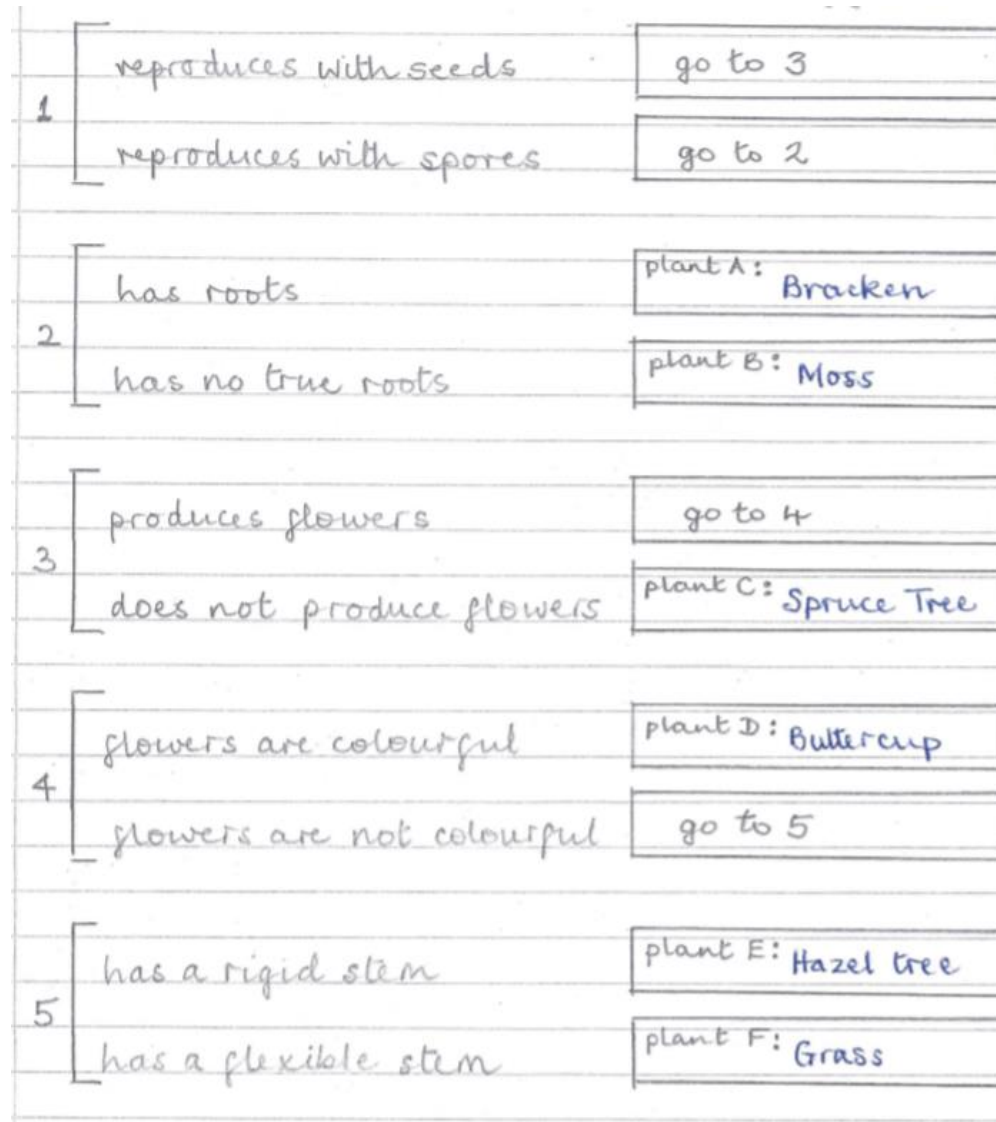 1
reproduces with seeds go to 3
reproduces with spores go to 2
2
has roots plant A: Bracken
has no true roots plant B: Moss
3
produces flowers go to 4
does not produce flowers plant C: Spruce Tree
4
flowers are colourful plant D: Buttercup
flowers are not colourful go to 5
5
has a rigid stem plant E: Hazel tree
has a flexible stem plant F: Grass